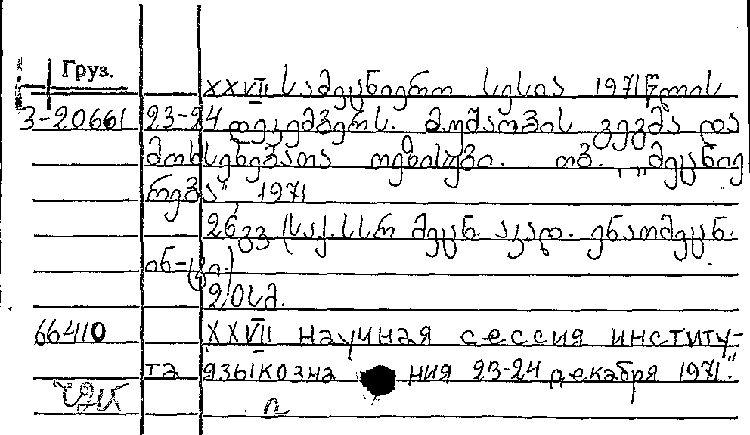 Груз.
XXVII სამეცნიერო სესია 1971 წლის
3-20661 23-24 დეკემბერს. მუშაობის გეგმა და
მოხსენებათა თეზისები. თბ. „მეცნიე
რება“, 1971
26 გვ (საქ. სსრ მეცნ. აკად. ენათმეცნ.
ინ-ტი)
20სმ.
66410 XXVII научная сессия институ-
та языкозна ния 23-24 декабря 1971."